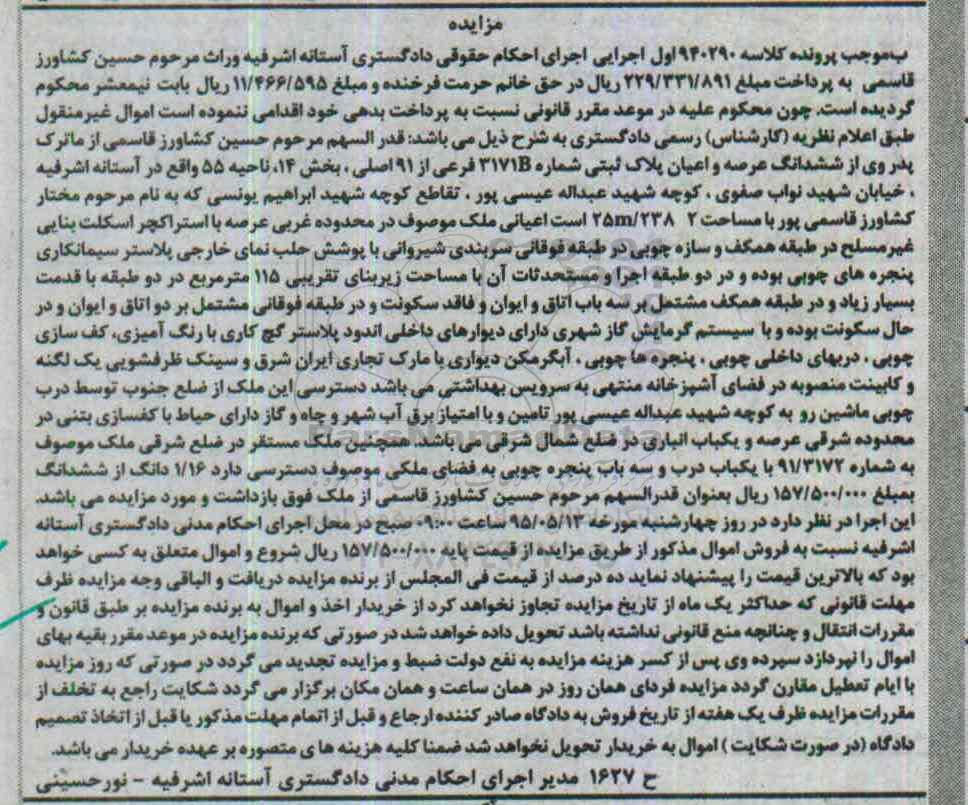 مزایده
بموجب پرونده کلاسه ۹۴۰۲۹۰ اول اجرایی اجرای احکام حقوقی دادگستری آستانه اشرفیه وراث مرحوم حسین کشاورز
قاسمی به پرداخت مبلغ ۲۲۹/۳۳۱/۸۹۱ ریال در حق خانم حرمت فرخنده و مبلغ ۱۱/۴۶۶/۵۹۵ ریال بابت نیمعشر محکوم
گردیده است. چون محکوم علیه در موعد مقرر قانونی نسبت به پرداخت بدهی خود اقدامی ننموده است اموال غیرمنقول
طبق اعلام نظریه (کارشناس) رسمی دادگستری به شرح ذیل می باشد: قدر السهم مرحوم حسین کشاورز قاسمی از ماترک
پدر وی از ششدانگ عرصه و اعیان پلاک ثبتی شماره ۳۱۷۱B فرعی از ۹۱ اصلی ، بخش ۱۴، ناحیه ۵۵ واقع در آستانه اشرفیه
، خیابان شهید نواب صفوی ، کوچه شهید عبداله عیسی پور ، تقاطع کوچه شهید ابراهیم یونسی که به نام مرحوم مختار
کشاورز قاسمی پور با مساحت ۲ ۲۵m/۲۳۸ است اعیانی ملک موصوف در محدوده غربی عرصه با استراکچر اسکلت بنایی
غیرمسلح در طبقه همکف و سازه چوبی در طبقه فوقانی سربندی شیروانی با پوشش حلب نمای خارجی پلاستر سیمانکاری
پنجره های چوبی بوده و در دو طبقه اجرا و مستحدثات آن با مساحت زیربنای تقریبی ۱۱۵ مترمربع در دو طبقه با قدمت
بسیار زیاد و در طبقه همکف مشتمل بر سه باب اتاق و ایوان و فاقد سکونت و در طبقه فوقانی مشتمل بر دو اتاق و ایوان و در
حال سکونت بوده و با سیستم گرمایش گاز شهری دارای دیوارهای داخلی اندود پلاستر گچ کاری با رنگ آمیزی، کف سازی
چوبی ، دربهای داخلی چوبی ، پنجره ها چوبی ، آبگرمکن دیواری با مارک تجاری ایران شرق و سینک ظرفشویی یک لگنه
و کابینت منصوبه در فضای آشپزخانه منتهی به سرویس بهداشتی می باشد دسترسی این ملک از ضلع جنوب توسط درب
چوبی ماشین رو به کوچه شهید عبداله عیسی پور تامین و با امتیاز برق آب شهر و چاه و گاز دارای حیاط با کفسازی بتنی در
محدوده شرقی عرصه و یکباب انباری در ضلع شمال شرقی می باشد. همچنین ملک مستقر در ضلع شرقی ملک موصوف
به شماره ۹۱/۳۱۷۲ با یکباب درب و سه باب پنجره چوبی به فضای ملکی موصوف دسترسی دارد ۱/۱۶ دانگ از ششدانگ
بمبلغ ۱۵۷/۵۰۰/۰۰۰ ریال بعنوان قدرالسهم مرحوم حسین کشاورز قاسمی از ملک فوق بازداشت و مورد مزایده می باشد.
این اجرا در نظر دارد در روز چهارشنبه مورخه ۹۵/۰۵/۱۳ ساعت ۰۹:۰۰ صبح در محل اجرای احکام مدنی دادگستری آستانه
اشرفیه نسبت به فروش اموال مذکور از طریق مزایده از قیمت پایه ۱۵۷/۵۰۰/۰۰۰ ریال شروع و اموال متعلق به کسی خواهد
بود که بالاترین قیمت را پیشنهاد نماید ده درصد از قیمت فی المجلس از برنده مزایده دریافت و الباقی وجه مزایده ظرف
مهلت قانونی که حداکثر یک ماه از تاریخ مزایده تجاوز نخواهد کرد از خریدار اخذ و اموال به برنده مزایده بر طبق قانون و
مقررات انتقال و چنانچه منع قانونی نداشته باشد تحویل داده خواهد شد در صورتی که برنده مزایده در موعد مقرر بقیه بهای
اموال را نپردازد سپرده وی پس از کسر هزینه مزایده به نفع دولت ضبط و مزایده تجدید می گردد در صورتی که روز مزایده
با ایام تعطیل مقارن گردد مزایده فردای همان روز در همان ساعت و همان مکان برگزار می گردد شکایت راجع به تخلف از
مقررات مزایده ظرف یک هفته از تاریخ فروش به دادگاه صادر کننده ارجاع و قبل از اتمام مهلت مذکور یا قبل از اتخاذ تصمیم
دادگاه (در صورت شکایت ) اموال به خریدار تحویل نخواهد شد ضمنا کلیه هزینه ها ی متصوره بر عهده خریدار می باشد.
ح ۱۶۲۷ مدیر اجرای احکام مدنی دادگستری آستانه اشرفیه - نورحسینی